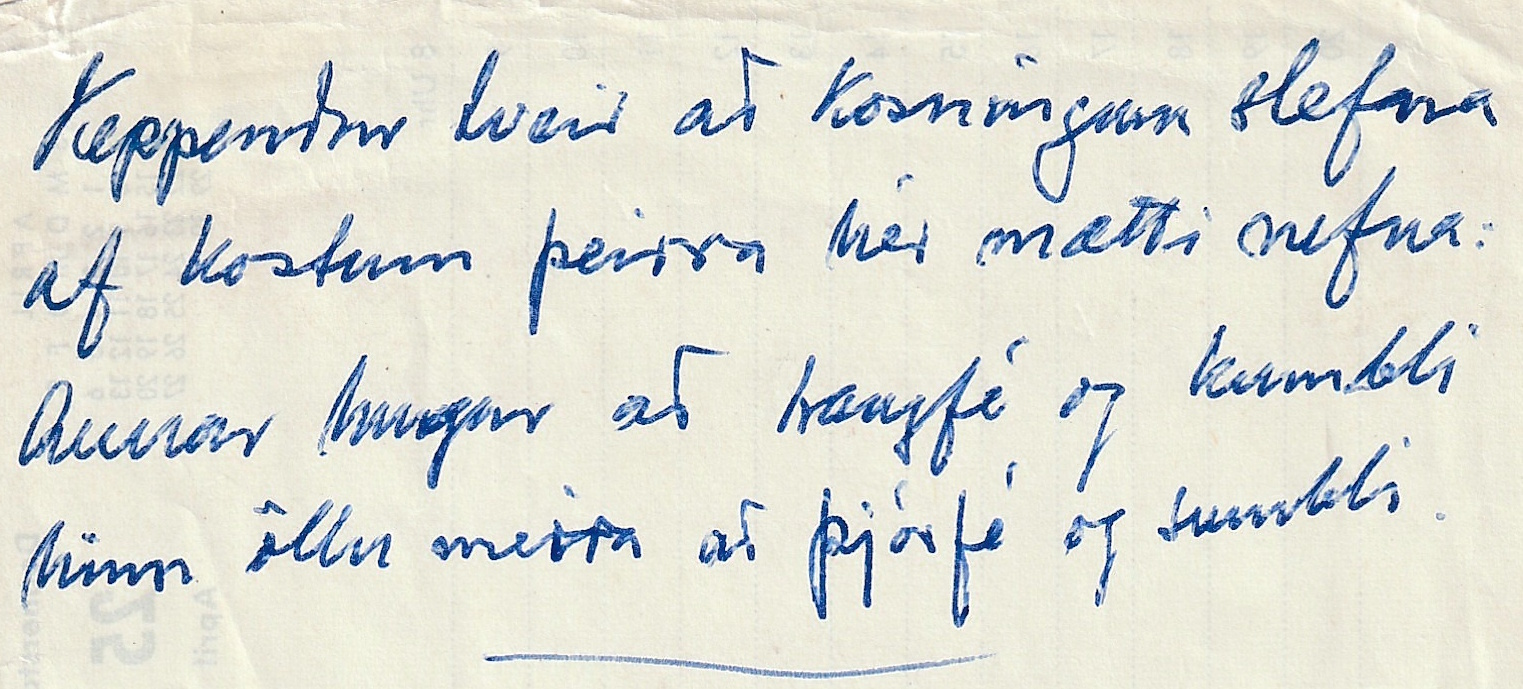 Keppendur tveir að kosningum stefna
af kostum þeirra hér mætti nefna:
Annar hugar að haugfé og kumbli
hinn öllu meira að þjórfé og sumbli.